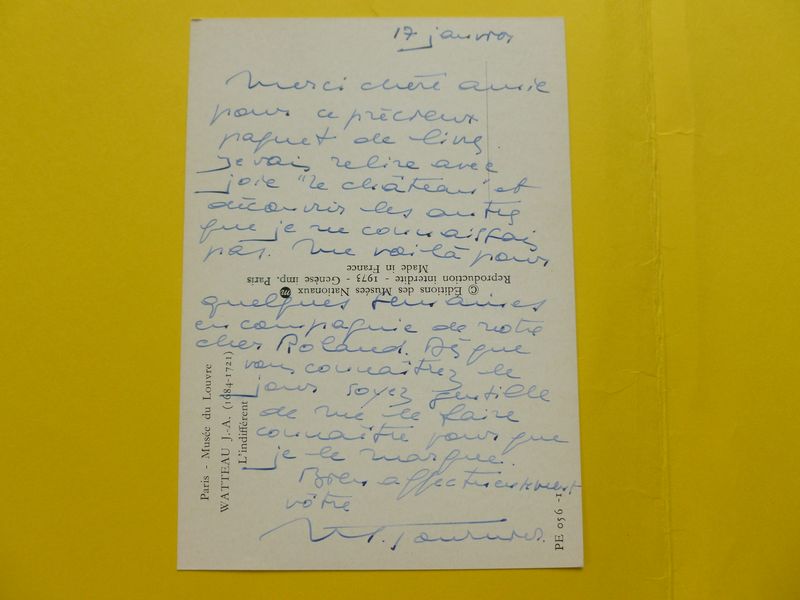 17 janvier
Merci chère amie
pour ce précieux
paquet de livres.
Je vais relire avec
joie "le château" et
découvrir les autres
que je ne connaissais
pas. Me voilà pour
© Éditions des Musées Nationaux m
Reproduction interdite - 1973 - Genèse imp. Paris
Made in France
quelques semaines
en compagnie de notre
cher Roland. Dès que
vous connaîtrez le
jour soyez gentille
de me le faire
connaître pour que
je le marque.
Bien affectueusement
vôtre
Paris - Musée du Louvre
WATTEAU J.-A. (1684-1721)
L'indifférent
PE 056 -1